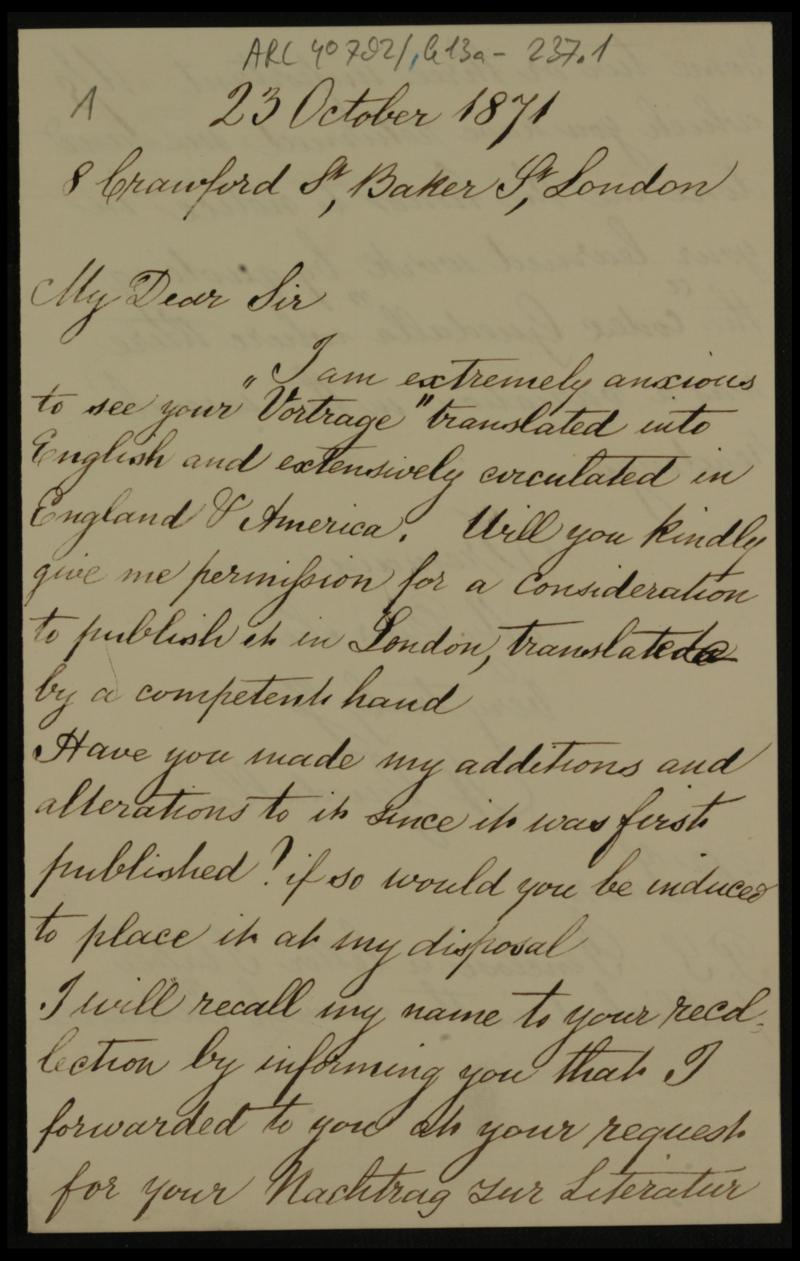 ARC 40 792/
237.1
1
23 October 1871
8 Crawford St, Baker St, London
My Dear Sir
I am extremely anxious
to see your "Vortrage" translated into
English and extensively circulated in
England & America. Will you kindly
give me permission for a consideration
to publish it in London, translated
by a competent hand
Have you made my additions and
alterations to it since it was first
published? if so would you be induced
to place it at my disposal
I will recall my name to your recol-
lection by informing you that I
forwarded to you at your request
for your Nachtrag zur Literatur